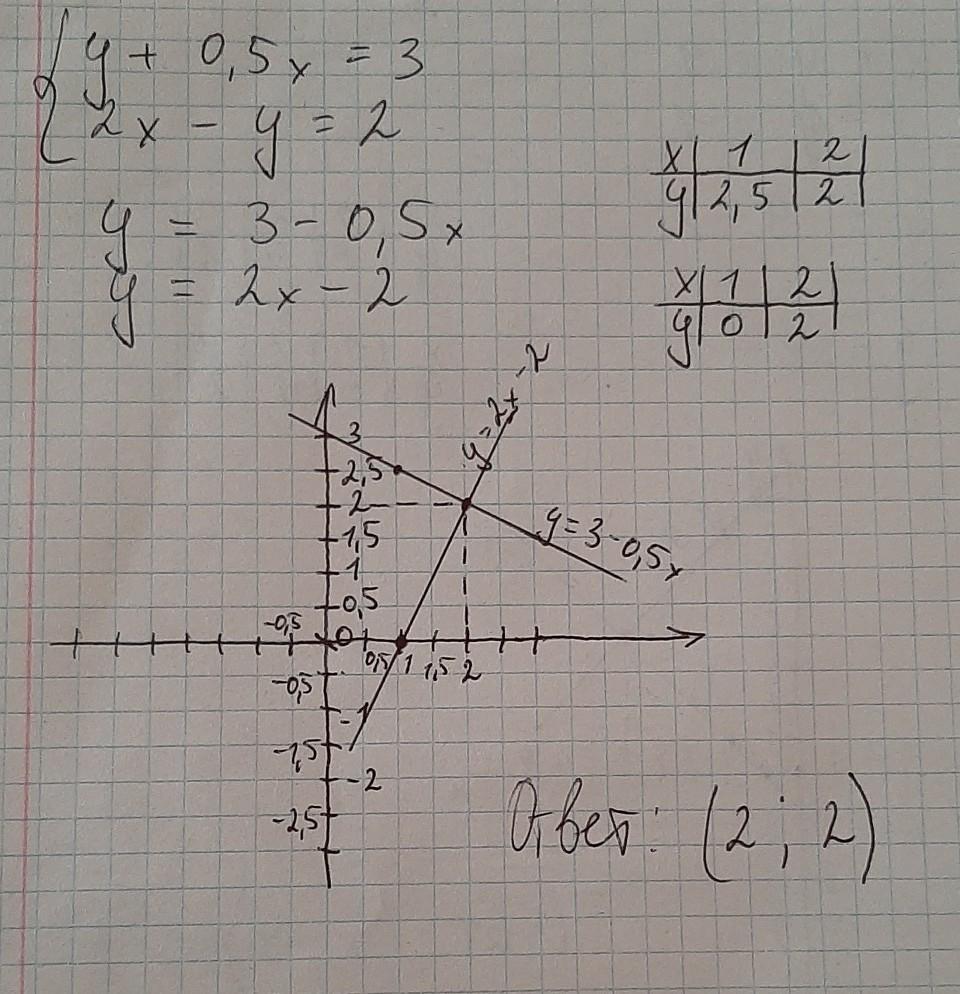 y + 0,5x = 3
2x - y = 2
y = 3 - 0,5x
y = 2x - 2
x | 1 | 2
y | 2,5 | 2
x | 1 | 2
y | 0 | 2
y = 2x - 2
3
2,5
2
y = 3 - 0,5x
1,5
1
0,5
-0,5
0
0,5 1 1,5 2
-0,5
-1
-1,5
-2
-2,5
Ответ: (2; 2)